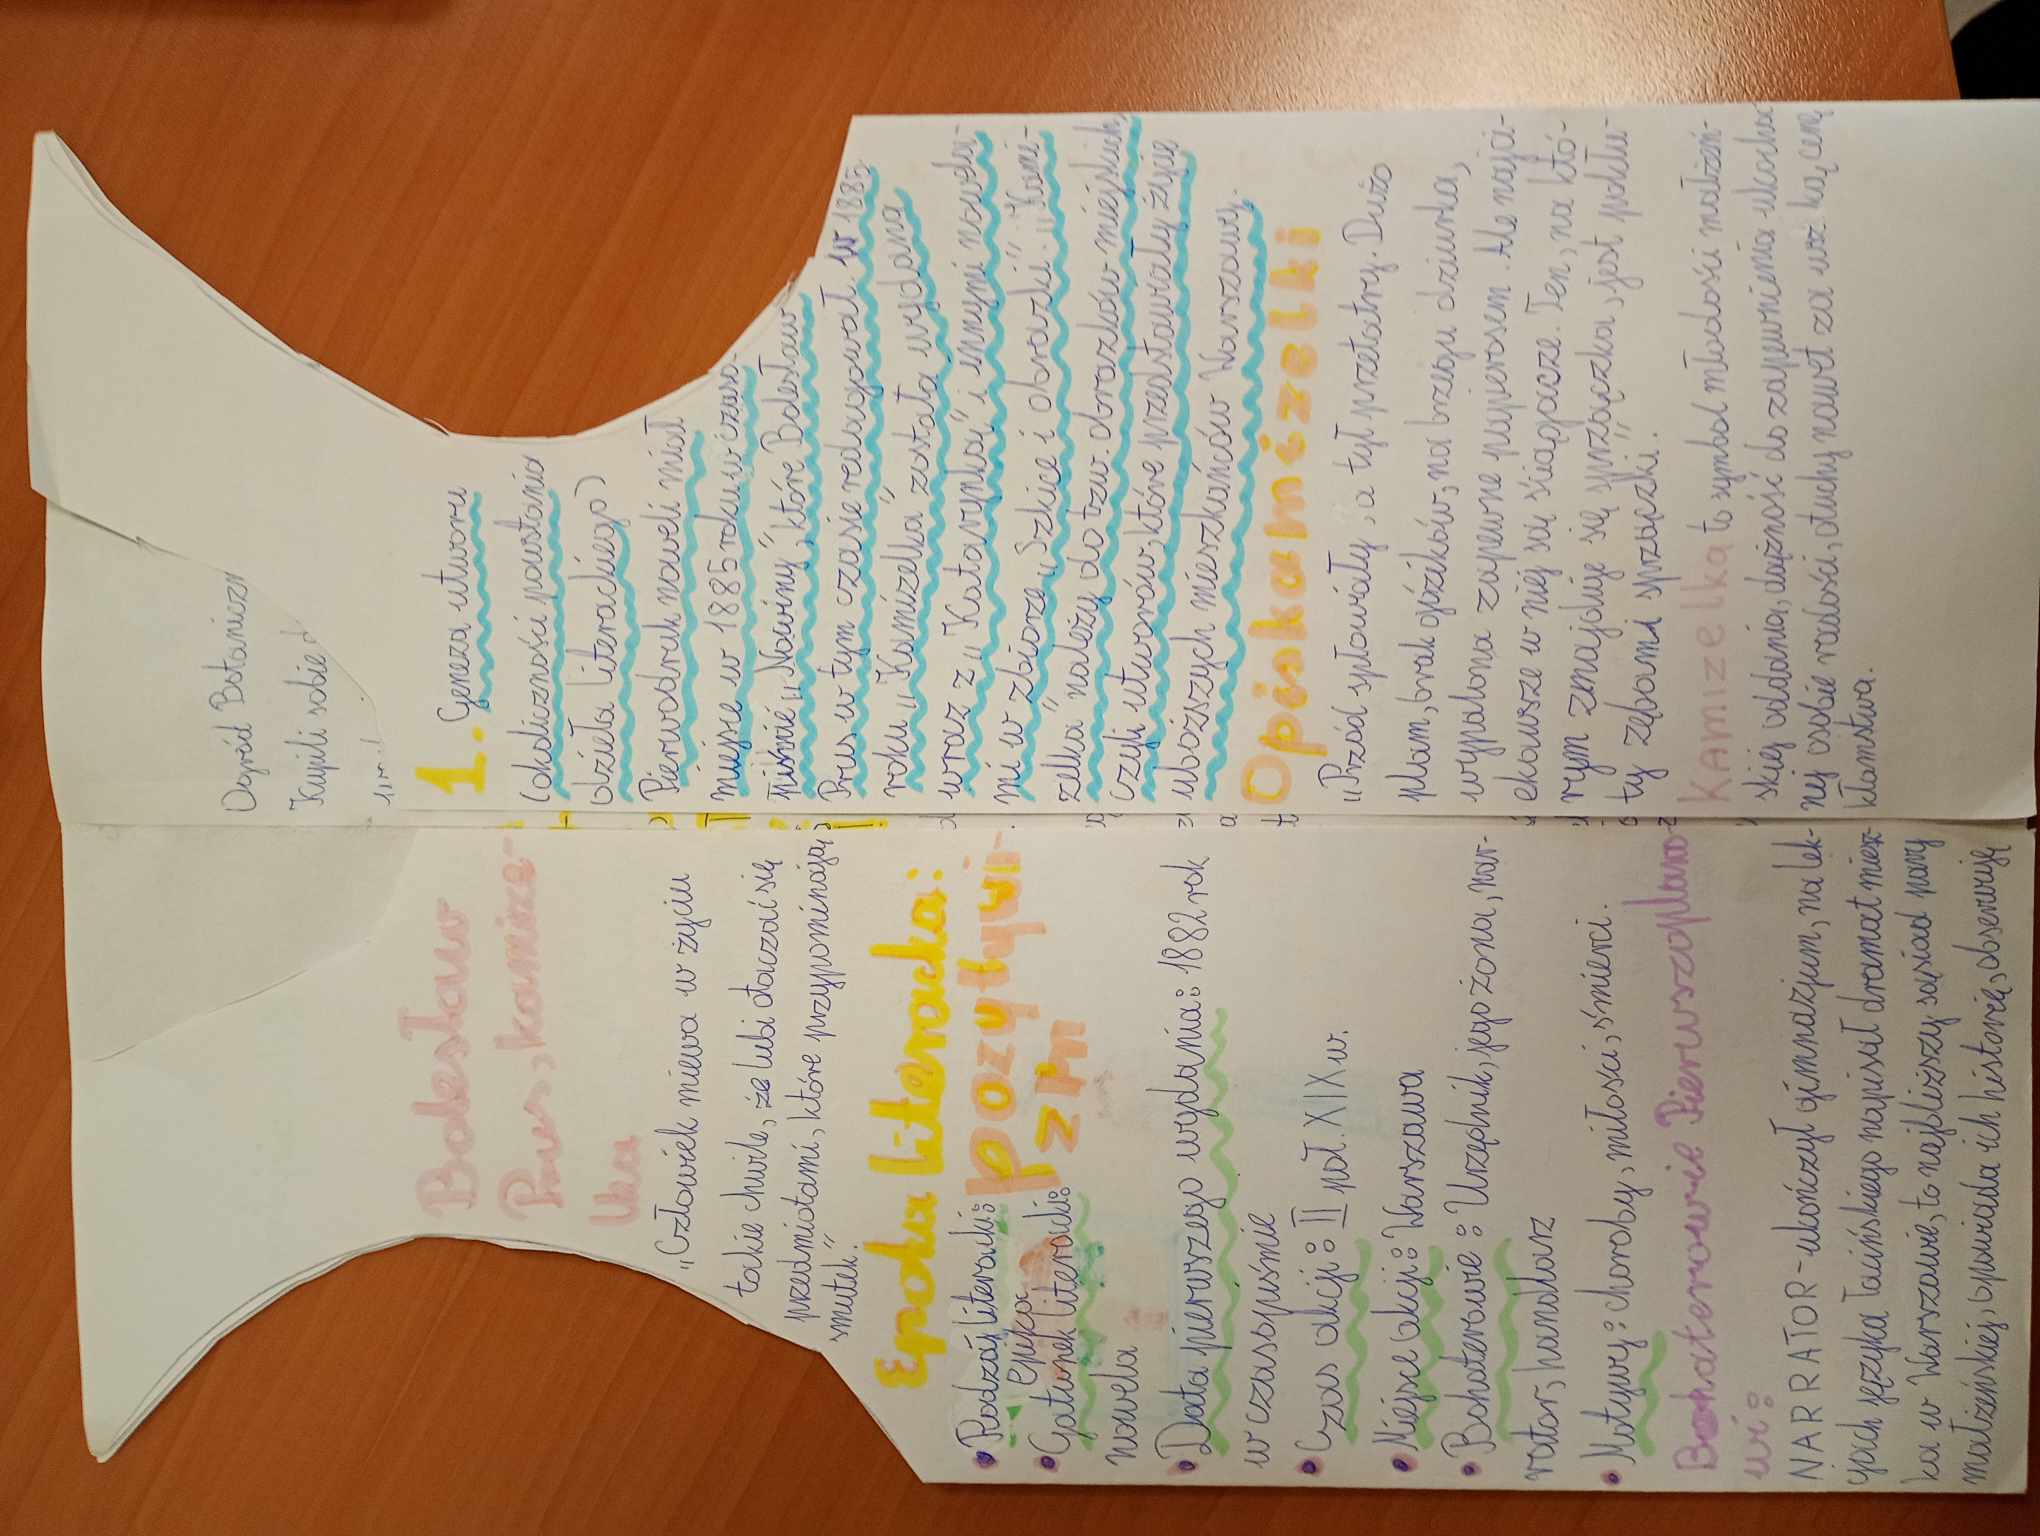 Bolesław
Prus, kamize-
lka
"Człowiek miewa w życiu
takie chwile, że lubi otaczać się
przedmiotami, które przypominają
smutek."
Epoka literacka:
pozytywi-
zm
• Rodzaj literacki:
Epika
• Gatunek literacki:
nowela
• Data pierwszego wydania: 1882 rok
w czasopiśmie
• Czas akcji: II poł. XIX w.
• Miejsce akcji: Warszawa
• Bohaterowie: Urzędnik, jego żona, nar-
rator, handlarz
• Motywy: choroby, miłości, śmierci.
Bohaterowie Pierwszoplano-
wi:
NARRATOR - ukończył gimnazjum, na lek-
cjach języka łacińskiego napisał dramat miesz-
ka w Warszawie, to najbliższy sąsiad pary
małżeńskiej, opowiada ich historię, obserwuję
Ogród Botaniczn
Kupili sobie
1. Geneza utworu
(okoliczności powstania
dzieła literackiego)
Pierwodruk noweli miał
miejsce w 1885 roku w czaso-
piśmie „Nowiny", które Bolesław
Prus w tym czasie redagował. w 1885
roku „Kamizelka" została wydana
wraz z „Katarynką" i innymi nowela-
mi w zbiorze „Szkice i obrazki". „Kami-
zelka" należy do tzw. obrazków miejskich,
czyli utworów, które przedstawiały życie
uboższych mieszkańców Warszawy.
Opis kamizelki
„Przód spłowiały, a tył przetarty. Dużo
plam, brak guzików, na brzegu dziurka,
wypalona zapewne papierosem. Ale najci-
ekawsze w niej są ściągacze. Ten, na któ-
rym znajduje się sprzączka, jest pokłu-
ty zębami sprzączki."
Kamizelka to symbol młodości małżeń-
skiej oddania, dążność do zapewnienia ukocha
nej osobie radości, otuchy nawet za wszką cenę
kłamstwa.